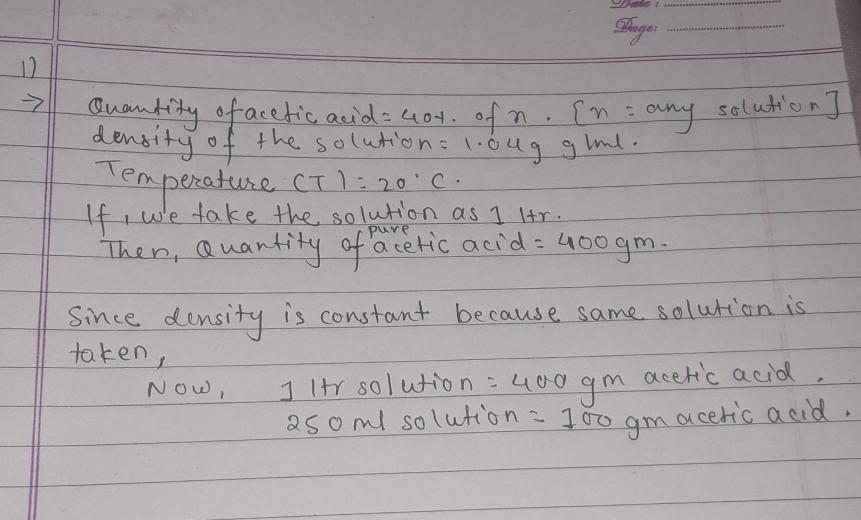 Date : ..............
Page: ..............
1)
→ Quantity of acetic acid = 40%. of n. [n = any solution]
density of the solution = 1.049 g/ml.
Temperature (T) = 20°C.
If, we take the solution as 1 ltr.
Then, Quantity of pure acetic acid = 400gm.
Since density is constant because same solution is
taken,
Now, 1 ltr solution = 400 gm acetic acid.
250 ml solution = 100 gm acetic acid.